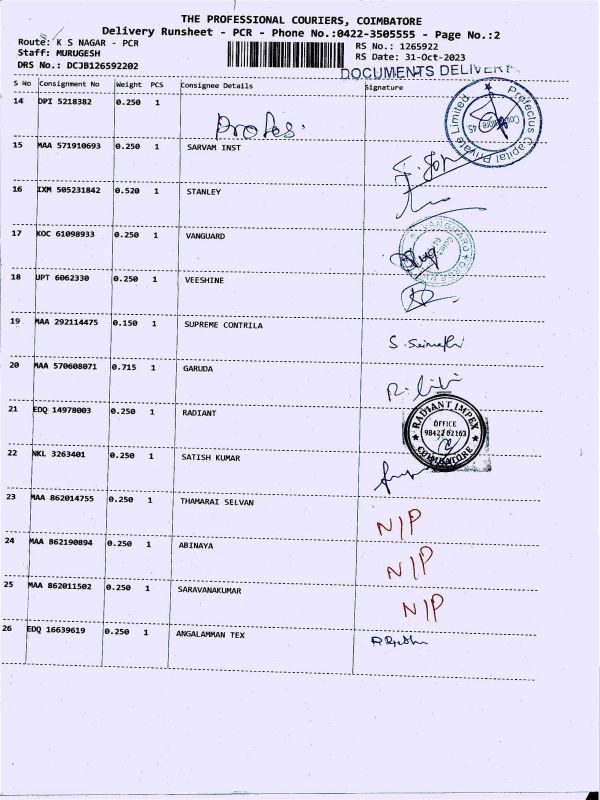 THE PROFESSIONAL COURIERS, COIMBATORE
Delivery Runsheet - PCR - Phone No.:0422-3505555 - Page No.:2
Route: K S NAGAR - PCR
RS No.: 1265922
Staff: MURUGESH
RS Date: 31-Oct-2023
DRS No.: DCJB126592202
DOCUMENTS DELIVERY
S No Consignment No Weight PCS Consignee Details Signature
14 DPI 5218382 0.250 1
Profes.
Prefectus Capital Private Limited
Coimbatore 45
15 MAA 571910693 0.250 1 SARVAM INST
16 IXM 505231842 0.520 1 STANLEY
17 KOC 61098933 0.250 1 VANGUARD
VANGUARD
18 UPT 6062330 0.250 1 VEESHINE
19 MAA 292114475 0.150 1 SUPREME CONTRILA
20 MAA 570608071 0.715 1 GARUDA
21 EDQ 14978003 0.250 1 RADIANT
RADIANT IMPEX
OFFICE
98422 02163
COIMBATORE
22 NKL 3263401 0.250 1 SATISH KUMAR
23 MAA 862014755 0.250 1 THAMARAI SELVAN
N/P
24 MAA 862190894 0.250 1 ABINAYA
N/P
25 MAA 862011502 0.250 1 SARAVANAKUMAR
N/P
26 EDQ 16639619 0.250 1 ANGALAMMAN TEX